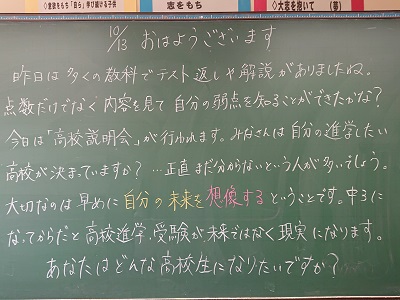 ◇意欲をもち「自ら」学び続ける子供
志をもち
◇大志を抱いて (夢)
10/13 おはようございます
昨日は多くの教科でテスト返しや解説がありましたね。
点数だけでなく内容を見て自分の弱点を知ることができたかな?
今日は「高校説明会」が行われます。みなさんは自分の進学したい
高校が決まっていますか? …正直まだ分からないという人が多いでしょう。
大切なのは早めに自分の未来を想像するということです。中3に
なってからだと高校進学、受験が、未来ではなく現実になります。
あなたはどんな高校生になりたいですか?